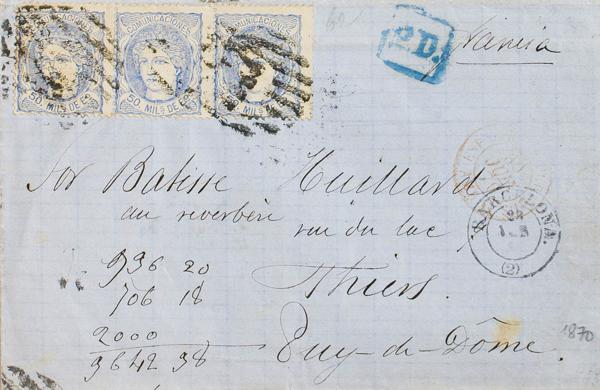 COMUNICACIONES COMUNICACIONES COMUNICACIONES
50 MILS DE E 50 MILS DE E 50 MILS DE E
P.D.
Francia
Sor Batisse Huillard
au reverbère rue du lac
Thiers.
Puy-de-Dôme.
936 20
706 18
2000
3642 38
BARCELONA.
24
(2)
1870